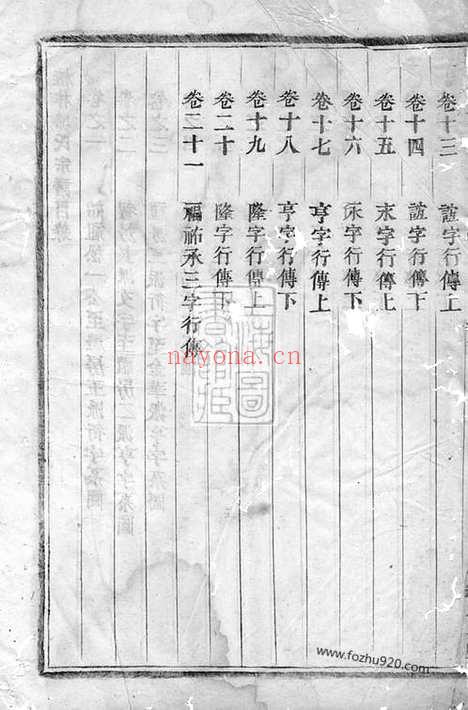 卷十三 誼字行傳上
卷十四 誼字行傳下
卷十五 永字行傳上
卷十六 永字行傳下
卷十七 亨字行傳上
卷十八 亨字行傳下
卷十九 隆字行傳上
卷二十 隆字行傳下
卷二十一 福祐承三字行傳
nayona.cn
www.fozhu920.com